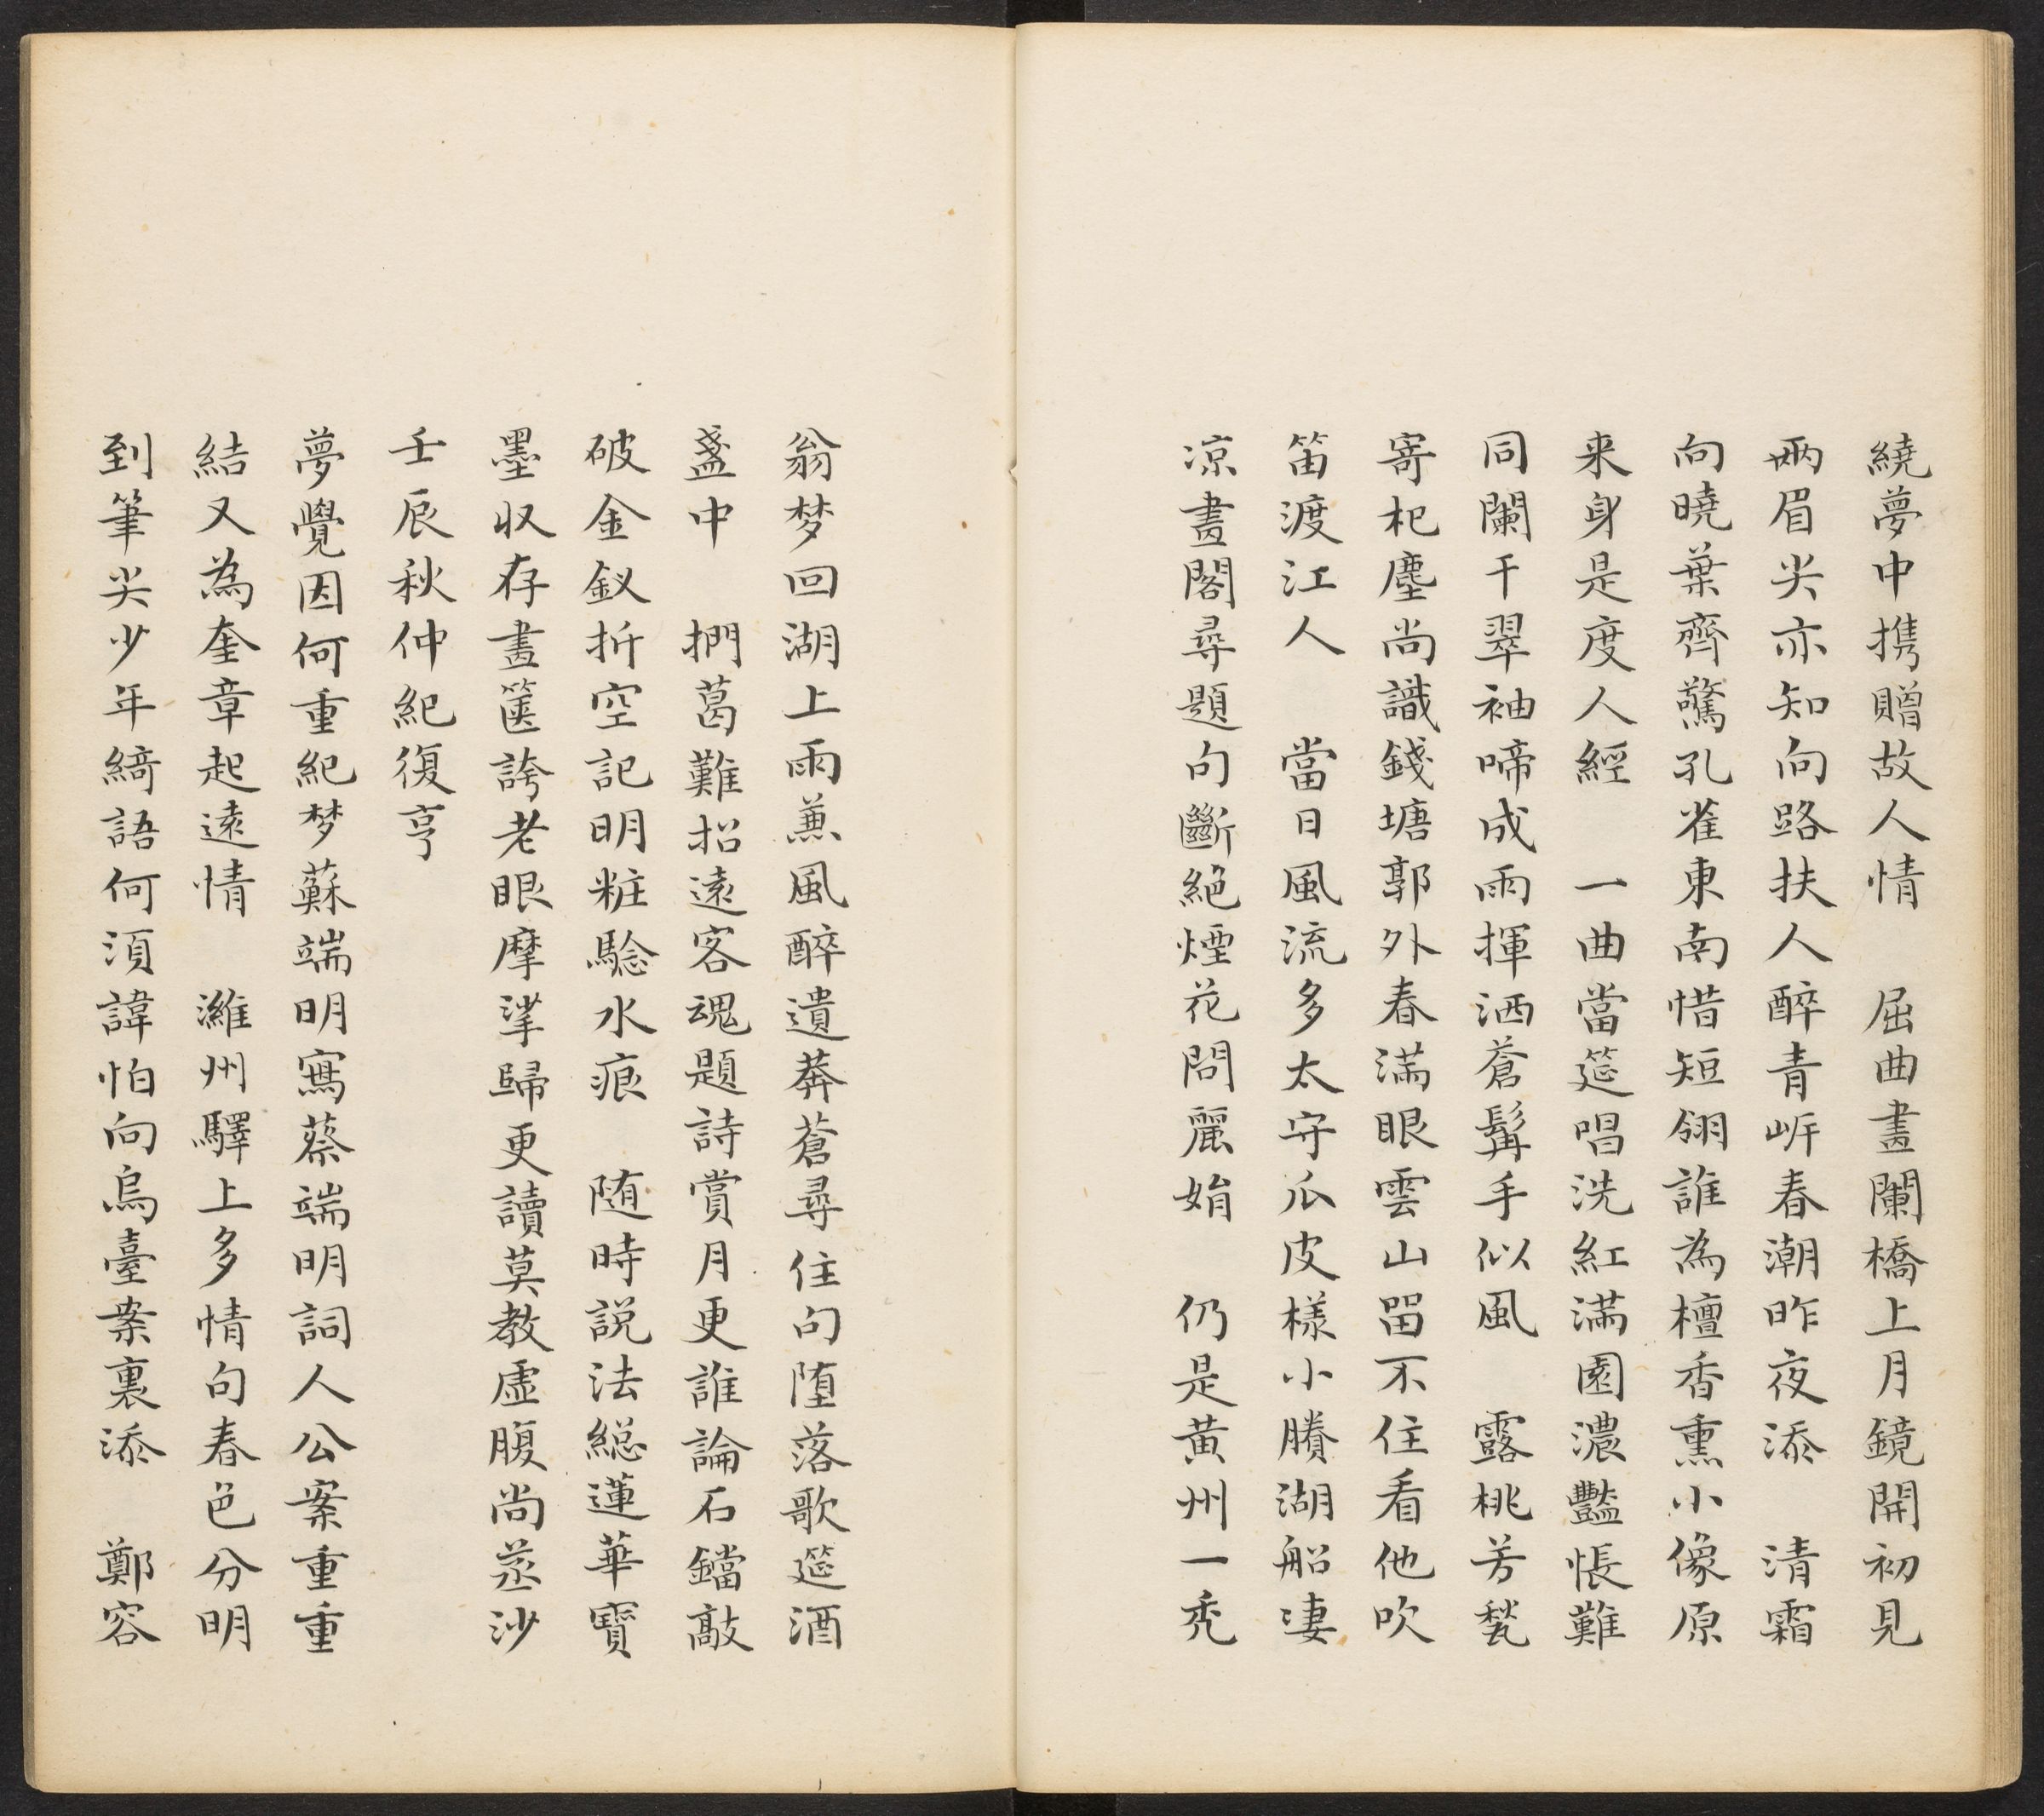 繞夢中携贈故人情　屈曲畫闌橋上月鏡開初見
兩眉尖亦知向路扶人醉青岸春潮昨夜添　清霜
向曉葉齊驚孔雀東南惜短翎誰為檀香熏小像原
来身是度人經　一曲當筵唱洗紅滿園濃豔悵難
同闌干翠袖啼成雨揮洒蒼髯手似風　露桃芳甃
寄杞塵尚識錢塘郭外春滿眼雲山畱不住看他吹
笛渡江人　當日風流多太守瓜皮樣小賸湖船凄
凉畫閣尋題句斷絕煙花問麗娟　仍是黃州一禿
翁梦回湖上雨蕭風醉遺莽蒼尋住句堕落歌筵酒
盞中　捫葛難招遠客魂題詩賞月更誰論石鐺敲
破金釵折空記明粧騐水痕　随時説法総蓮華寶
墨収存畫篋誇老眼摩挲歸更讀莫教虛腹尚蒸沙
壬辰秋仲紀復亨
夢覺因何重紀梦蘇端明寫蔡端明詞人公案重重
結又為奎章起遠情　濰州驛上多情句春色分明
到筆尖少年綺語何須諱怕向烏臺案裏添　鄭容